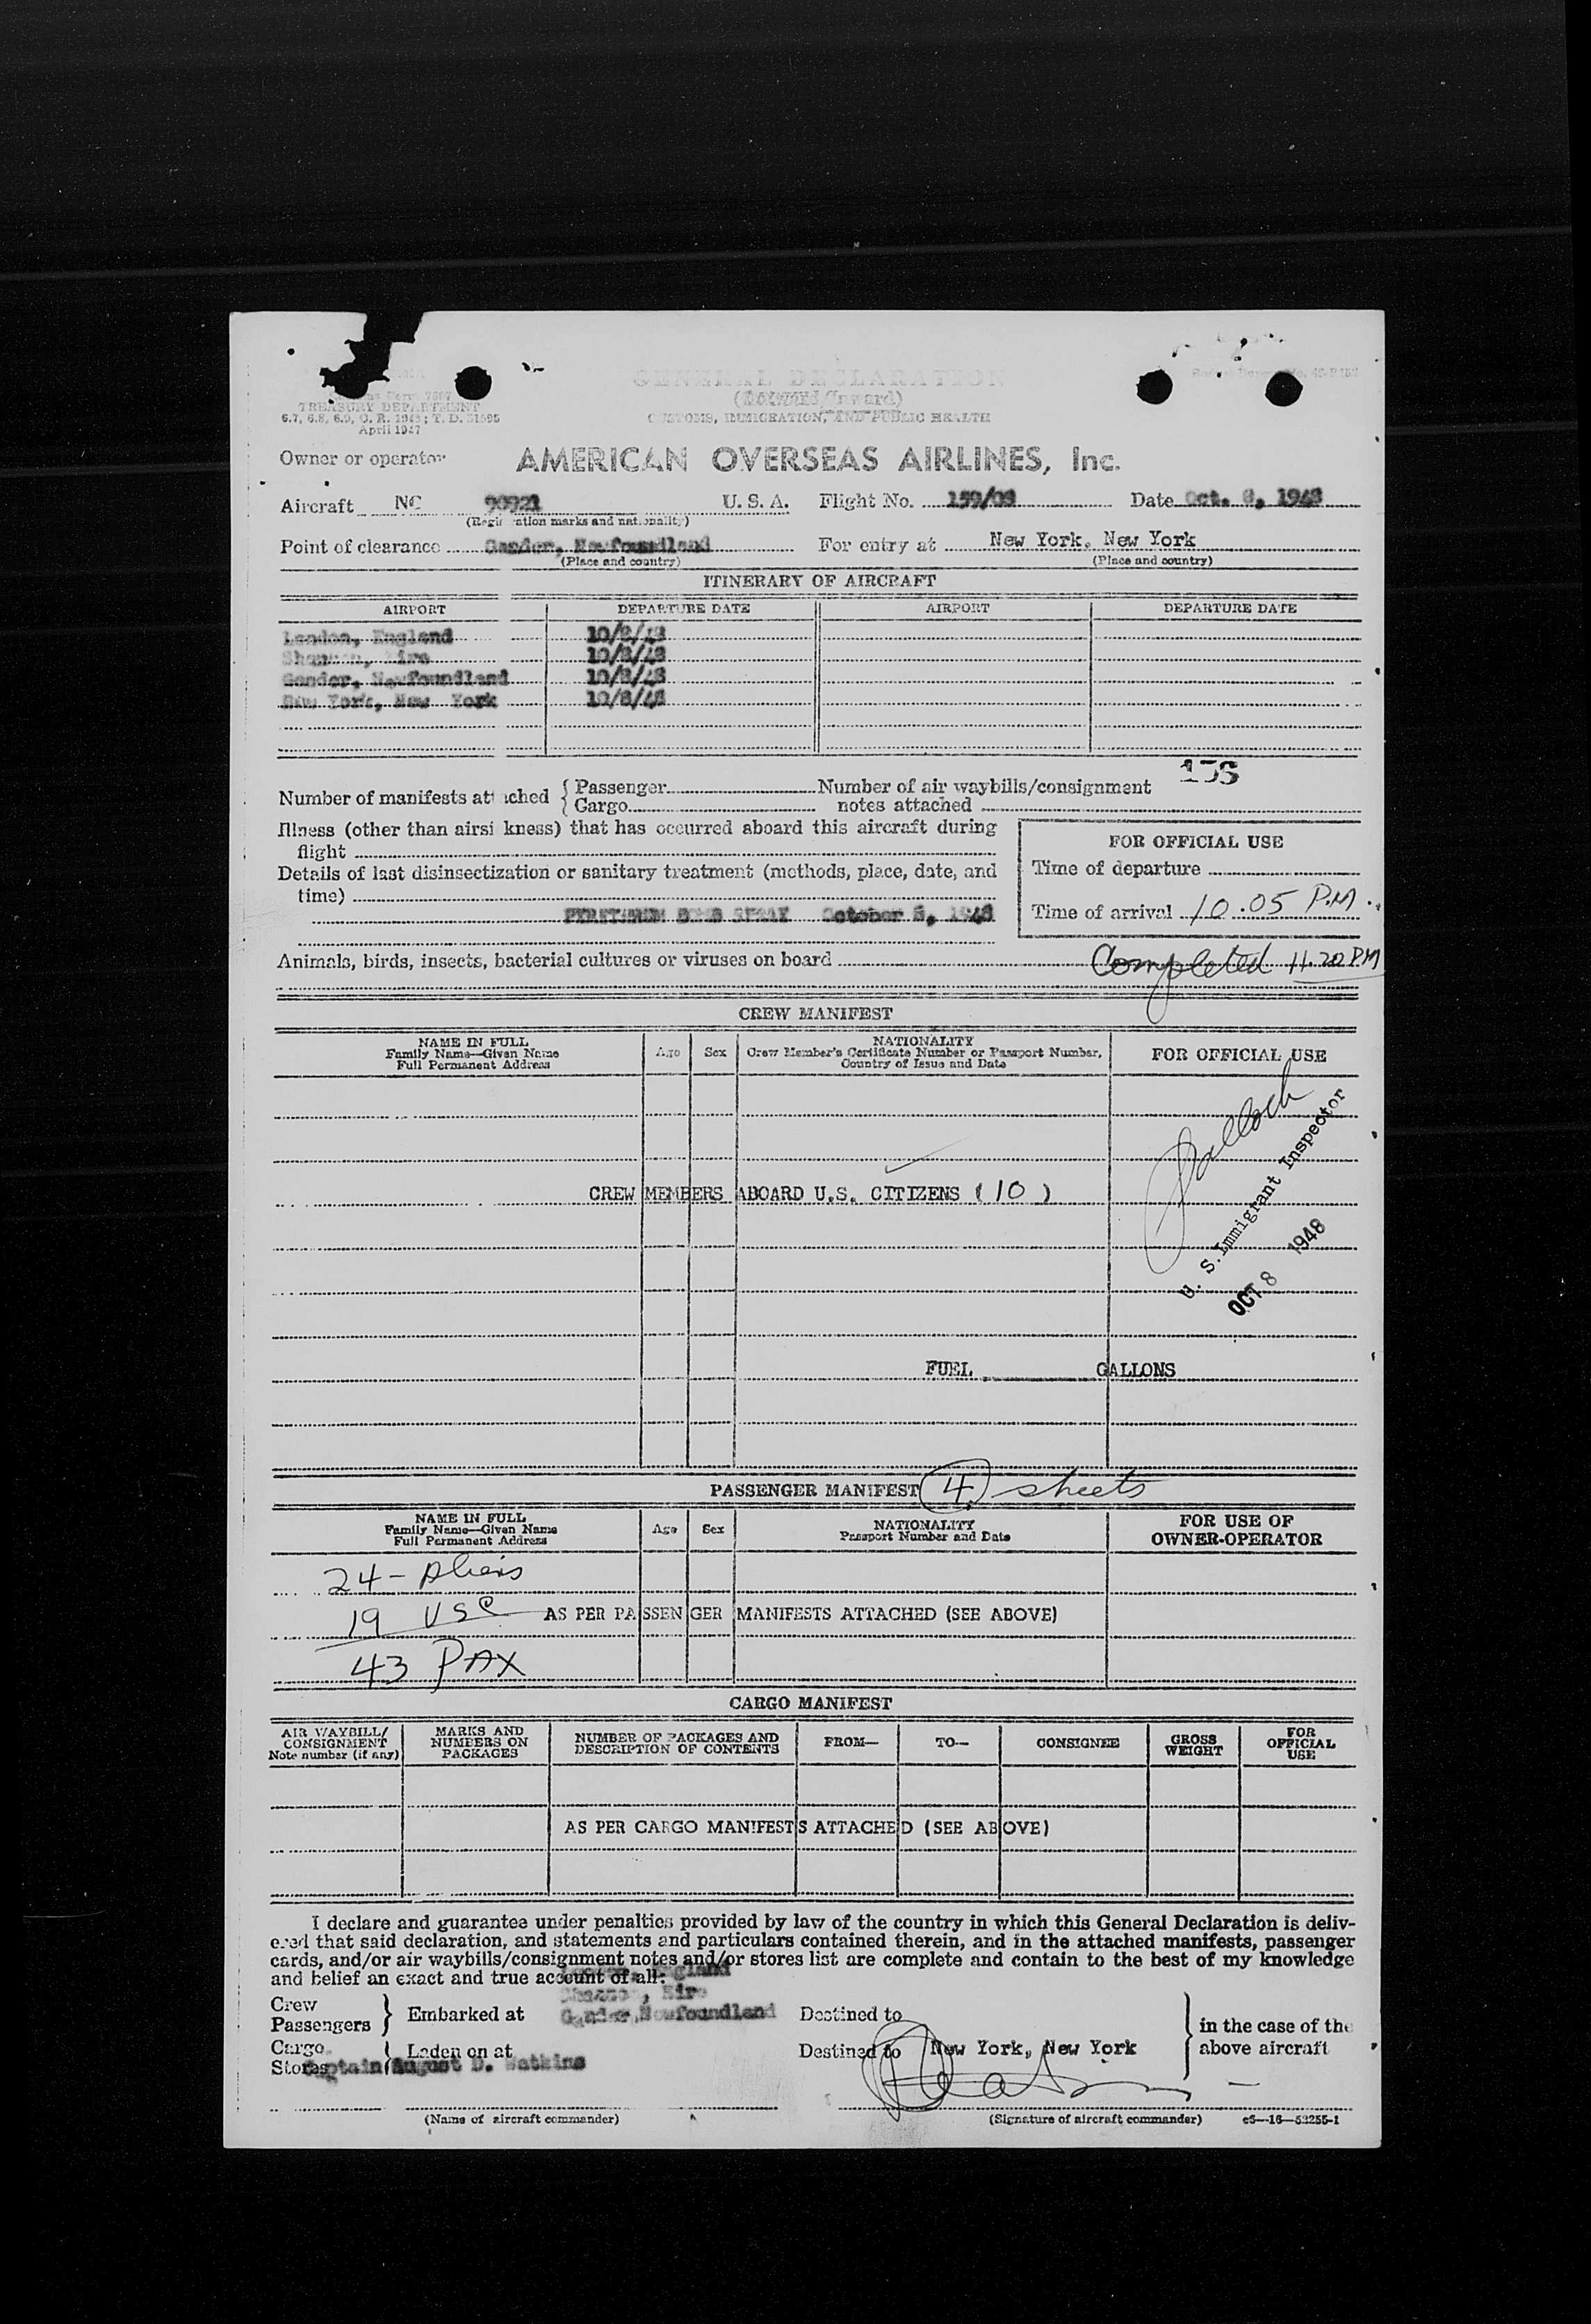 GENERAL DECLARATION
(Outward/Inward)
TREASURY DEPARTMENT
CUSTOMS, IMMIGRATION, AND PUBLIC HEALTH
April 1947
Owner or operator AMERICAN OVERSEAS AIRLINES, Inc.
Aircraft NC 90921 U. S. A. Flight No. 159/08 Date Oct. 8, 1948
(Registration marks and nationality)
Point of clearance Gander, Newfoundland For entry at New York, New York
(Place and country) (Place and country)
ITINERARY OF AIRCRAFT
AIRPORT DEPARTURE DATE AIRPORT DEPARTURE DATE
London, England 10/8/48
Shannon, Eire 10/8/48
Gander, Newfoundland 10/8/48
New York, New York 10/8/48
Number of manifests attached { Passenger Number of air waybills/consignment
Cargo notes attached
Illness (other than airsickness) that has occurred aboard this aircraft during
flight
FOR OFFICIAL USE
Details of last disinsectization or sanitary treatment (methods, place, date, and
time)
Time of departure
PYRETHRUM BOMB SPRAY October 8, 1948
Time of arrival 10.05 P.M.
Animals, birds, insects, bacterial cultures or viruses on board Completed 11.20 PM
CREW MANIFEST
NAME IN FULL
Family Name—Given Name
Full Permanent Address
Age Sex
NATIONALITY
Crew Member's Certificate Number or Passport Number,
Country of Issue and Date
FOR OFFICIAL USE
CREW MEMBERS ABOARD U.S. CITIZENS (10)
U. S. Immigrant Inspector
OCT 8 1948
FUEL GALLONS
PASSENGER MANIFEST 4 sheets
NAME IN FULL
Family Name—Given Name
Full Permanent Address
Age Sex
NATIONALITY
Passport Number and Date
FOR USE OF
OWNER-OPERATOR
24 - Aliens
19 USC AS PER PASSENGER MANIFESTS ATTACHED (SEE ABOVE)
43 PAX
CARGO MANIFEST
AIR WAYBILL/
CONSIGNMENT
Note number (if any)
MARKS AND
NUMBERS ON
PACKAGES
NUMBER OF PACKAGES AND
DESCRIPTION OF CONTENTS
FROM—
TO—
CONSIGNEE
GROSS
WEIGHT
FOR
OFFICIAL
USE
AS PER CARGO MANIFESTS ATTACHED (SEE ABOVE)
I declare and guarantee under penalties provided by law of the country in which this General Declaration is deliv-
ered that said declaration, and statements and particulars contained therein, and in the attached manifests, passenger
cards, and/or air waybills/consignment notes and/or stores list are complete and contain to the best of my knowledge
and belief an exact and true account of all:
London, England
Shannon, Eire
Crew
Passengers } Embarked at Gander, Newfoundland Destined to
in the case of the
above aircraft
Cargo
Stores } Laden on at Destined to New York, New York
Captain August D. Watkins
(Name of aircraft commander) (Signature of aircraft commander) c6—16—52255-1